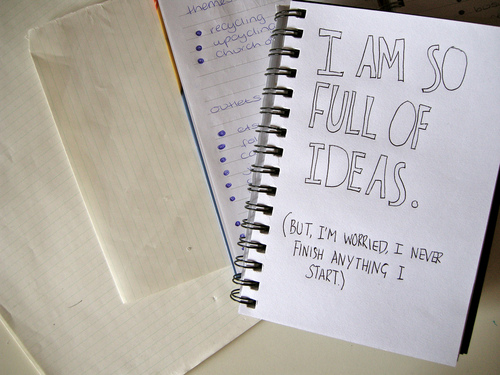 themes
recycling
upcycling
church
outlets
I AM SO
FULL OF
IDEAS.
(BUT, I'M WORRIED, I NEVER
FINISH ANYTHING I
START.)